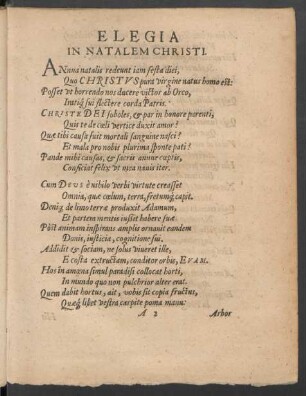 ELEGIA
IN NATALEM CHRISTI.
ANnua natalis redeunt iam festa diei,
Quo CHRISTVS pura virgine natus homo est:
Posset vt horrendo nos ducere victor ab Orco,
Inq; sui flectere corda Patris.
CHRISTE DEI soboles, & par in honore parenti,
Quis te de cœli vertice duxit amor?
Quæ tibi causa fuit mortali sanguine nasci?
Et mala pro nobis plurima sponte pati?
Pande mihi causas, & sacris annue cœptis,
Conficiat felix vt mea nauis iter.
Cum DEVS è nihilo verbi virtute creasset
Omnia, quæ cœlum, terra, fretumq; capit.
Deniq; de limo terræ produxit Adamum,
Et partem mentis iussit habere suæ.
Pòst animam inspirans amplis ornauit eandem
Donis, iusticia, cognitione sui.
Addidit & sociam, ne solus viueret ille,
Et costa extructam, conditor orbis, EVAM.
Hos in amœna simul paradisi collocat horti,
In mundo quo non pulchrior alter erat.
Quem dabit hortus, ait, vobis sit copia fructus,
Quæq; libet vestra carpite poma manu:
A 2 Arbor